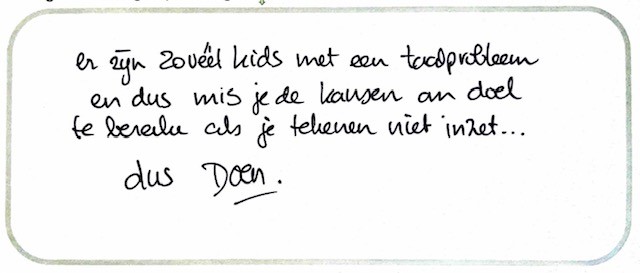 er zijn zovéél kids met een taalprobleem
en dus mis je de kansen om doel
te bereiken als je tekenen niet inzet...
dus Doen.